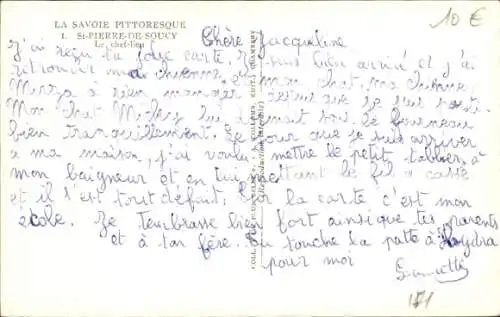 LA SAVOIE PITTORESQUE
1. St-PIERRE-DE-SOUCY
Le chef-lieu
10 €
Chère Jacqueline
J'ai reçu ta jolie carte. Je suis bien arrivé et j'ai
retrouvé ma chienne, mon chat, ma chienne
Mirza a rien manger depuis que je suis
Mon chat Mickey lui sous le fourneau
bien tranquillement. Le jour que je suis arriver
a ma maison, j'ai voulu mettre le petit tablier, à
mon baigneur et en lui mettant le fil a cassé
et il s'est tout défait. Sur la carte c'est mon
école. Je t'embrasse bien fort ainsi que tes parents
et à ton frère. touche la patte à
pour moi
171